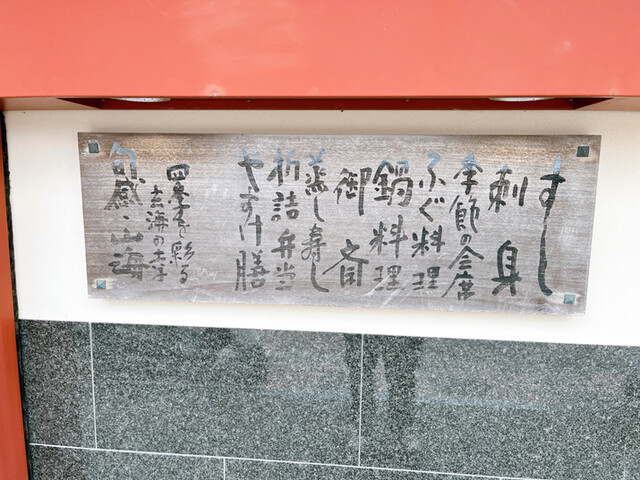 すし
刺身
季節の会席
ふぐ料理
鍋料理
御斎
蒸し寿し
折詰弁当
やすけ膳
四季を彩る
玄海の幸
旬感・山海